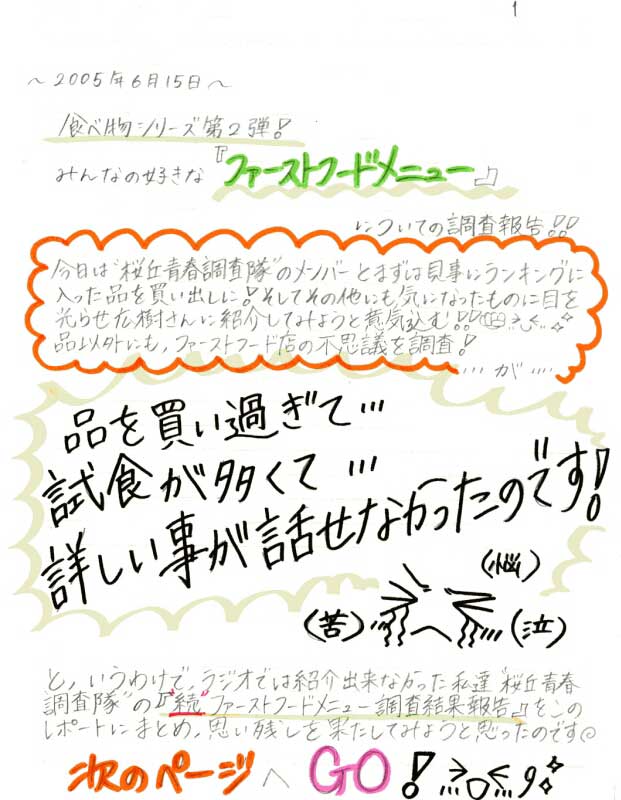 1
～2005年6月15日～
食べ物シリーズ第2弾!
みんなの好きな『ファーストフードメニュー』
についての調査報告!!
今日は"桜丘青春調査隊"のメンバーとまずは見事にランキングに
入った品を買い出しに!そしてその他にも気になったものに目を
光らせ広樹さんに紹介してみようと意気込む!!
品以外にも,ファーストフード店の不思議を調査!
‥‥が‥‥
品を買い過ぎて…
試食が多くて…
詳しい事が話せなかったのです!
(悩)
(苦) (泣)
と,いうわけで,ラジオでは紹介出来なかった私達"桜丘青春
調査隊"の『"続"ファーストフードメニュー調査結果報告』をこの
レポートにまとめ,思い残しを果たしてみようと思ったのです。
次のページへGO!